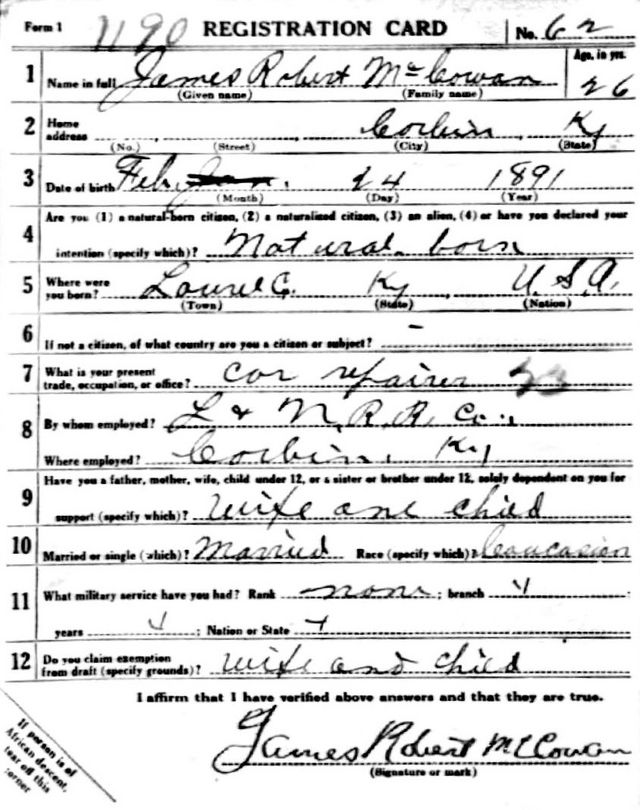 Form 1 1190 REGISTRATION CARD No. 62
1 Name in full James Robert McCowan Age, in yrs. 26
(Given name) (Family name)
2 Home address Corbin, Ky
(No.) (Street) (City) (State)
3 Date of birth Feb. Jan. 24 1891
(Month) (Day) (Year)
4 Are you (1) a natural-born citizen, (2) a naturalized citizen, (3) an alien, (4) or have you declared your
intention (specify which)? Natural born
5 Where were you born? Laurel Co. Ky, U.S.A.
(Town) (State) (Nation)
6 If not a citizen, of what country are you a citizen or subject? -
7 What is your present trade, occupation, or office? car repairer 23
8 By whom employed? L & N. R. R. Co.,
Where employed? Corbin, Ky
9 Have you a father, mother, wife, child under 12, or a sister or brother under 12, solely dependent on you for
support (specify which)? wife one child
10 Married or single (which)? Married Race (specify which)? Caucasian
11 What military service have you had? Rank none; branch
years ; Nation or State
12 Do you claim exemption from draft (specify grounds)? wife and child
I affirm that I have verified above answers and that they are true.
James Robert McCowan
(Signature or mark)
If person is of
African descent,
tear off this
corner